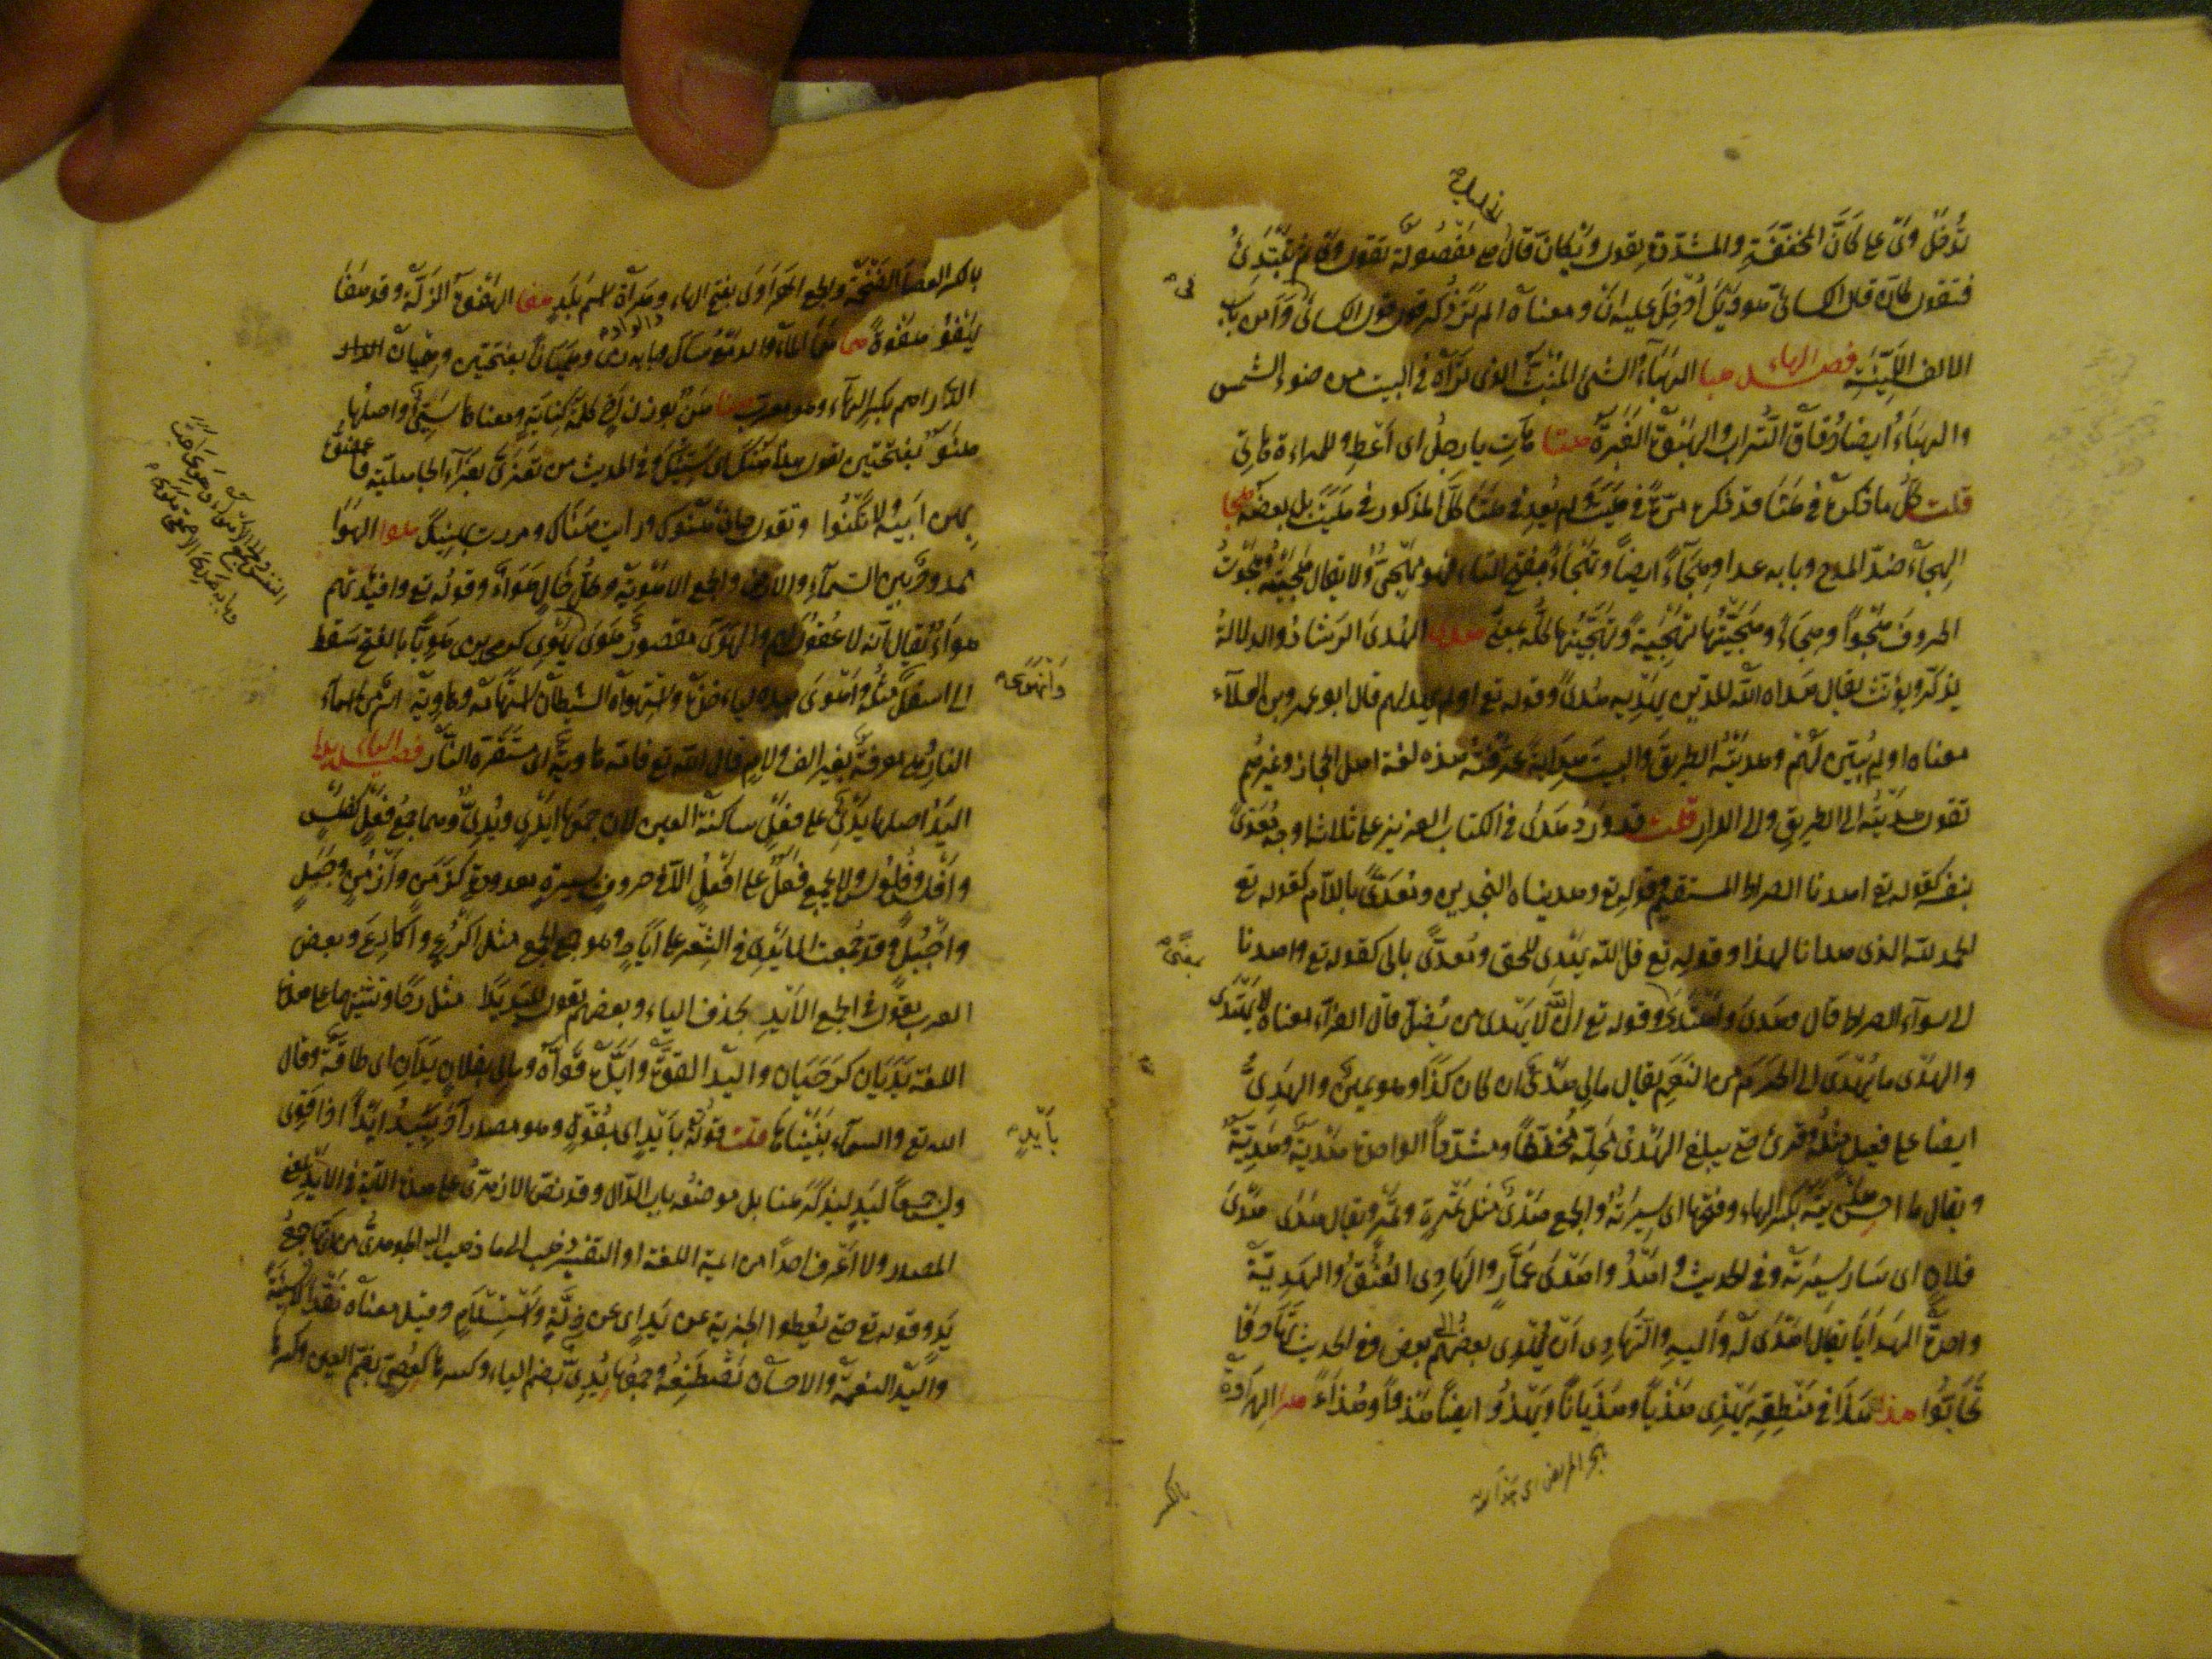 تدخل وى على كأن المخففة والمشددة تقول ويكأن قال الخليل هى مفصولة تقول وى ثم تبتدئ
فتقول كأن قال الكسائى هو ويك أدخل عليه ان ومعناه الم تر وذكر قول الكسائى وى وا من باب
الالف اللينة فصل الهاء هبا الهباء الشئ المنبث الذى تراه فى البيت من ضوء الشمس
والهباء ايضا دقاق التراب والهبوة الغبرة هتا هات يا رجل اى أعط وللمراءة هاتى
قلت كل ما ذكره فى هتا قد ذكره مرة فى هيت لم يعد فى هتا كل المذكور فى هيت بل بعضه هجا
الهجاء ضد المدح وبابه عدا وهجاء ايضا وتهجاء بفتح التاء فهو مهجو ولا تقال هجيته وهجوت
الحروف هجوا وهجاء وهجيتها تهجية وتهجيتها كله بمعنى هدى الهدى الرشاد والدلالة
يذكر ويؤنث يقال هداه الله للدين يهديه هدى وقوله تع اولم يهد لهم قال ابو عمرو بن العلاء
معناه اولم يبين لهم وهديته الطريق والبيت هداية عرفته هذه لغة اهل الحجاز وغيرهم
تقول هديته الى الطريق والى الدار قلت قد ورد هدى فى الكتاب العزيز على ثلاثة اوجه معدى
بنفسه كقوله تع اهدنا الصراط المستقيم وقوله تع وهديناه النجدين ومعدى باللام كقوله تع
الحمد لله الذى هدانا لهذا وقوله تع قل الله يهدى للحق ومعدى بالى كقوله تع واهدنا
الى سواء الصراط قال وهدى واهتدى بمعنى وقوله تع ان الله لا يهدى من يضل قال الفراء معناه لا يهتدى
والهدى ما يهدى الى الحرم من النعم يقال مالى هدى ان كان كذا وهو يمين والهدى
ايضا على فعيل مثله وقرئ حتى يبلغ الهدى محله مخففا ومشددا الواحدة هدية وهدية
ويقال ما احسن هديته بكسر الهاء وفتحها اى سيرته والجمع هدى مثل تمرة وتمر ويقال هدى هدى
فلان اى سار سيرته وفى الحديث واهدوا هدى عمار والهادى العنق والهدية
واحدة الهدايا يقال اهدى له واليه والتهادى أن يهدى بعضهم الى بعض وفى الحديث تهادوا
تحابوا هذا هذا فى منطقه يهذى هذيا وهذيانا ويهذو ايضا هذوا وهذاء هرا الهراوة
بالكسر العصا الضخمة والجمع الهراوى بفتح الهاء وهراة اسم بلد هفا الهفوة الزلة وقد هفا
يهفو هفوة همى همى الماء والدمع سال وبابه رمى وهميانا بفتحتين وهميان
الدراهم بكسر الهاء وهو معرب هنا هن بوزن اخ كلمة كناية ومعناه شئ واصلها
هنو بفتحتين تقول هذا هنك اى شيئك وفى الحديث من تعزى بعزاء الجاهلية فاعضوه
بهن ابيه ولا تكنوا وتقول جاءنى هنوك ورايت هناك ومررت بهنيك هوا الهوا
ممدود ما بين السماء والارض والجمع الاهوية وكل خال هواء وقوله تع وافئدتهم
هواء يقال انه لا عقول لهم والهوى مقصور هوى النفس هوى يهوى كرمى يرمى هويا بالفتح سقط
الى اسفل وانهوى مثله واهوى بيده ليأخذه واستهواه الشيطان استهامه وهاوية اسم من اسماء
النار وهى معرفة بغير الف ولام قال الله تع فامه هاوية اى مستقره النار فصل الياء يدا
اليد اصلها يدى على فعل ساكنة العين لان جمعها ايدى ويدى وهما جمع فعل كفلس
وافلس وفلوس ولا يجمع فعل على افعل الا فى حروف يسيرة معدودة كزمن وازمن وجبل
واجبل وقد جمعت الايدى فى الشعر على اياد وهو جمع الجمع مثل اكرع واكارع وبعض
العرب يقول فى الجمع الايد بحذف الياء وبعضهم يقول لليد يدا مثل رحا وتثنيتها على هذه
اللغة يديان كرحيان واليد القوة وايده قواه ومالى بفلان يدان اى طاقة وقال
الله تع والسماء بنيناها بأيد قلت قوله بأيد اى بقوة وهو مصدر آد يئيد ايدا اذا قوى
وليس جمعا ليد ليذكر هنا بل موضعه باب الدال وقد نص الازهرى على هذه الآية فى الايد بمعنى
المصدر ولا اعرف احدا من ائمة اللغة او التفسير ذهب الى ما ذهب اليه الجوهرى من انها جمع
يد وقوله تع حتى يعطوا الجزية عن يد اى عن ذلة واستسلام وقيل معناه نقدا لا نسيئة
واليد النعمة والاحسان تصطنعه وجمعها يدى بضم الياء وكسرها كعصى بضم العين وكسرها